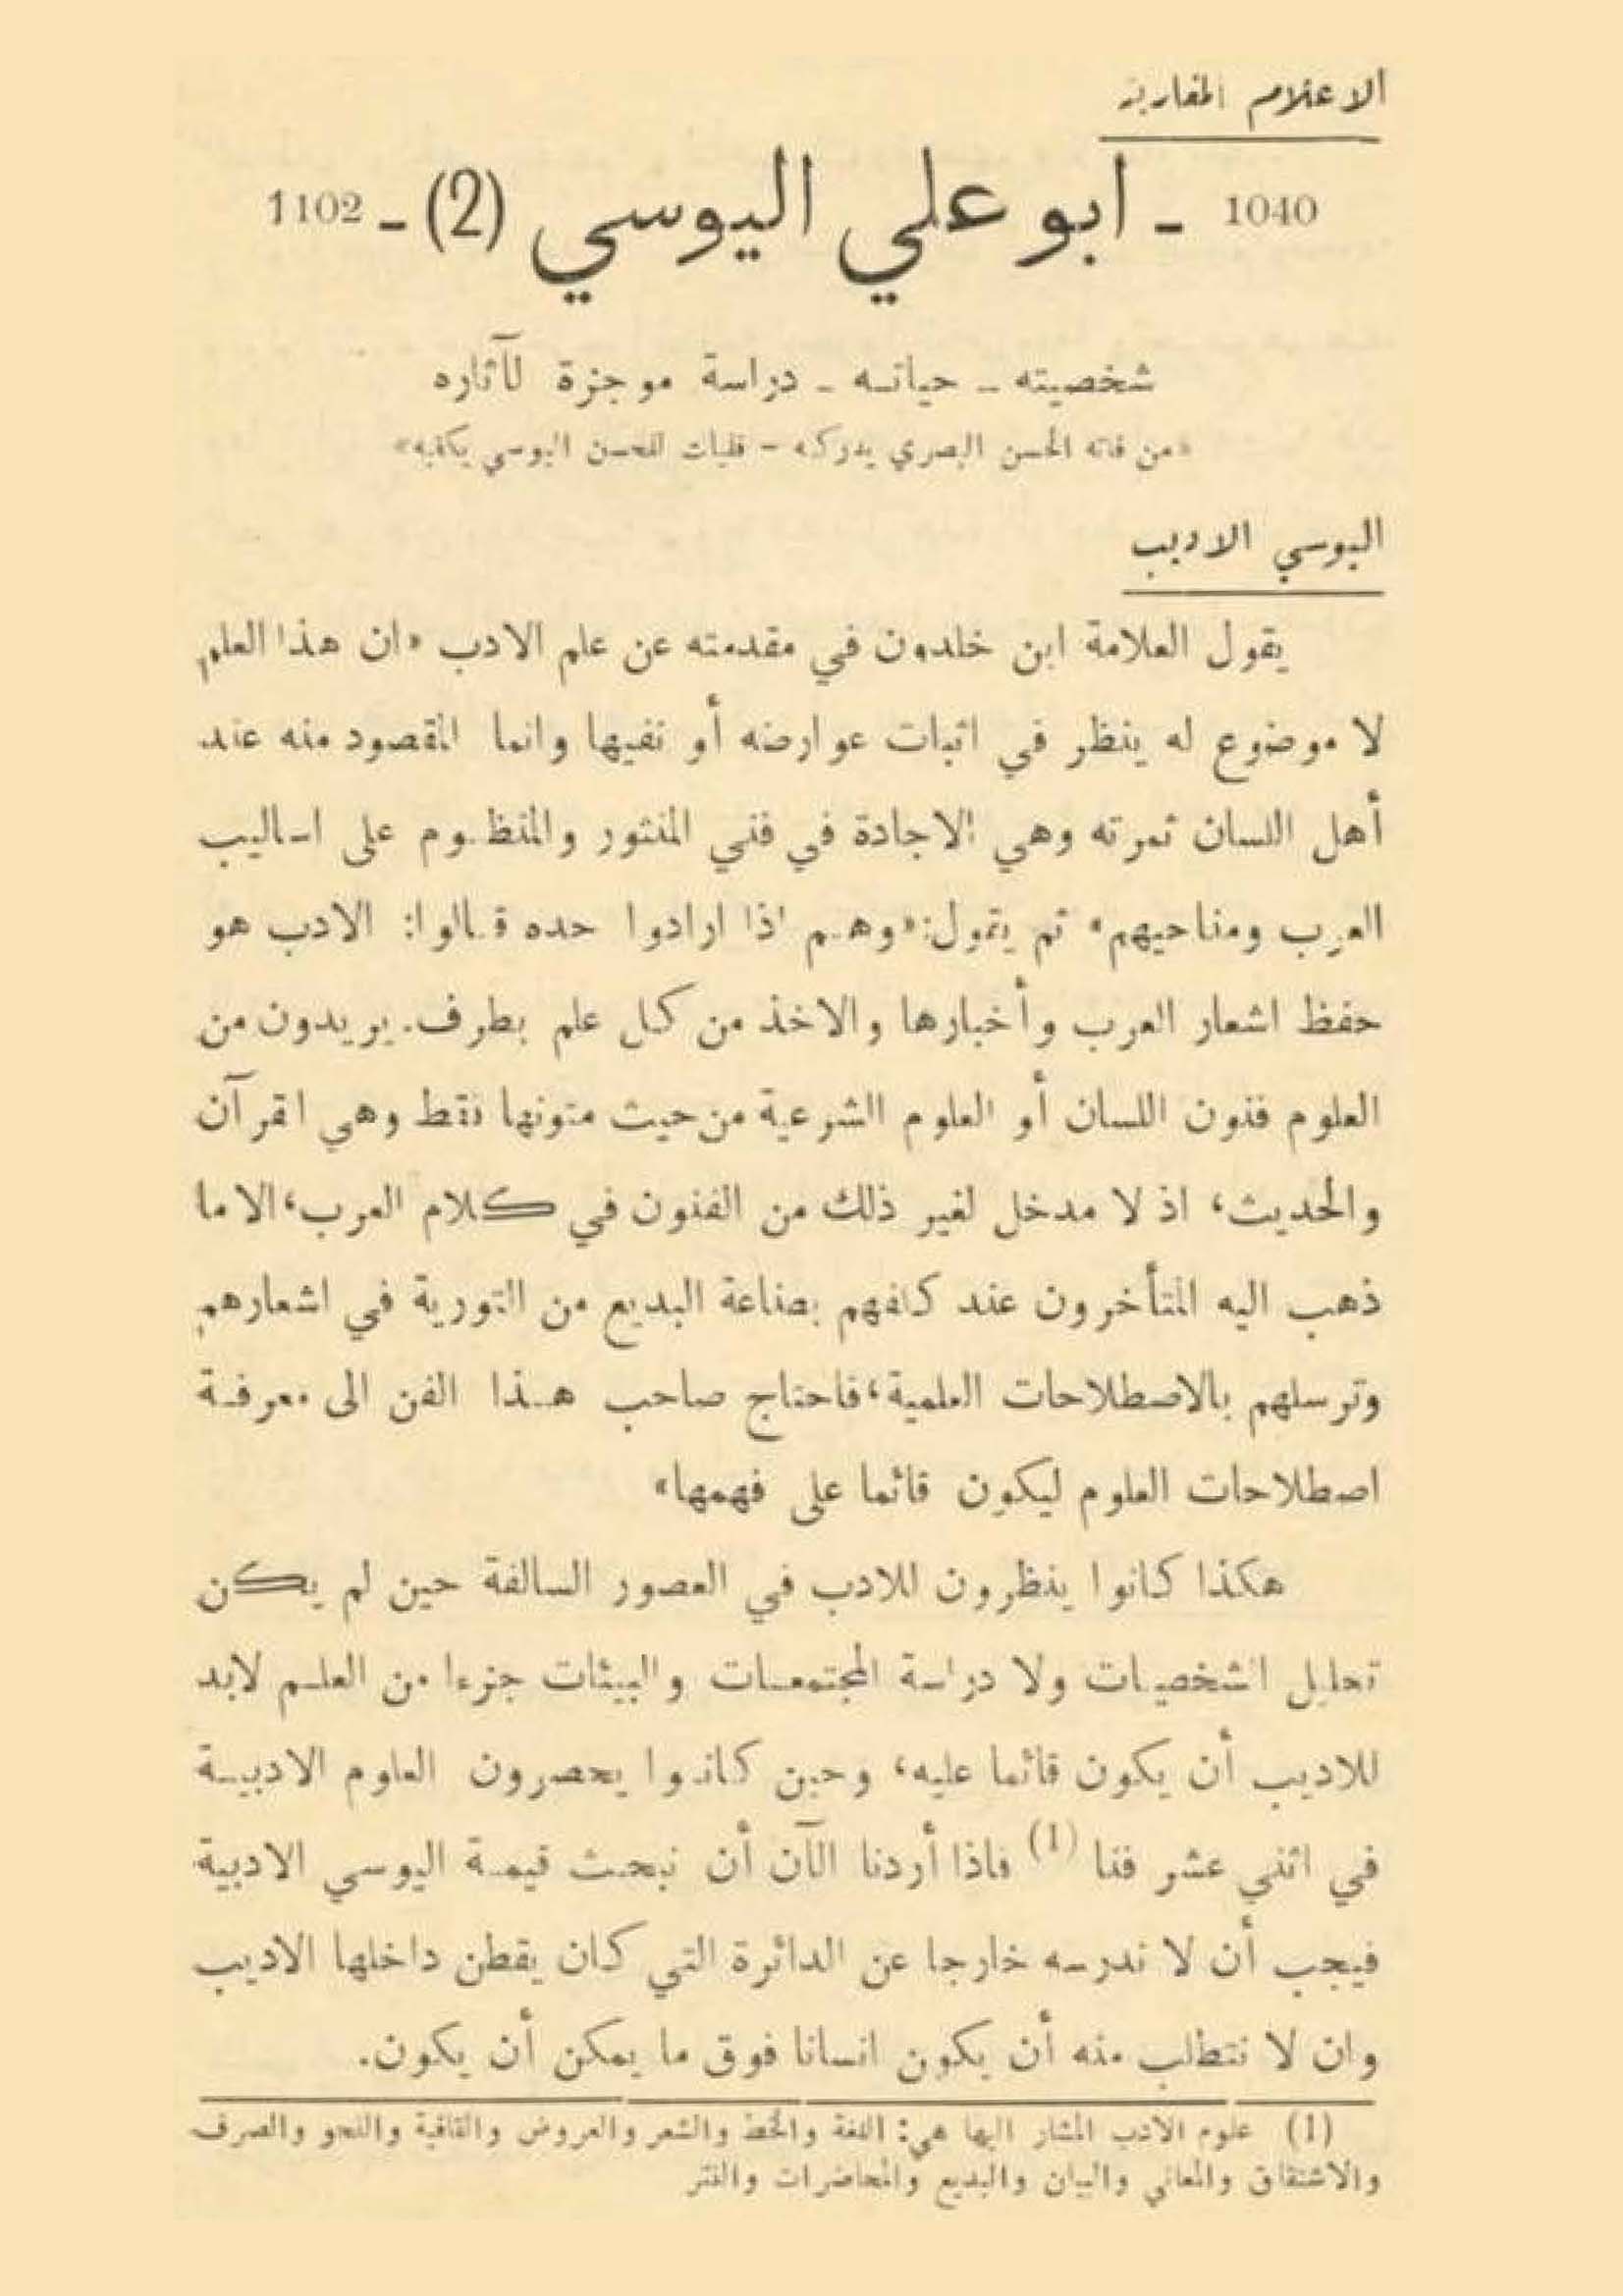 الاعلام المغاربة
1040 ـ ابو علي اليوسي (2) ـ 1102
شخصيته ـ حياته ـ دراسة موجزة لآثاره
«من فاته الحسن البصري يدركه - فليات للحسن اليوسي يكفيه»
اليوسي الاديب
يقول العلامة ابن خلدون في مقدمته عن علم الادب «ان هذا العلم
لا موضوع له ينظر في اثبات عوارضه أو نفيها وانما المقصود منه عند
أهل اللسان ثمرته وهي الاجادة في فني المنثور والمنظوم على اساليب
العرب ومناحيهم» ثم يقول: «وهم اذا ارادوا حده قالوا: الادب هو
حفظ اشعار العرب وأخبارها والاخذ من كل علم بطرف. يريدون من
العلوم فنون اللسان أو العلوم الشرعية من حيث متونها فقط وهي القرآن
والحديث، اذ لا مدخل لغير ذلك من الفنون في كلام العرب، الا ما
ذهب اليه المتأخرون عند كلفهم بصناعة البديع من التورية في اشعارهم
وترسلهم بالاصطلاحات العلمية، فاحتاج صاحب هذا الفن الى معرفة
اصطلاحات العلوم ليكون قائما على فهمها»
هكذا كانوا ينظرون للادب في العصور السالفة حين لم يكن
تحليل الشخصيات ولا دراسة المجتمعات والبيئات جزءا من العلم لابد
للاديب أن يكون قائما عليه، وحين كانوا يحصرون العلوم الادبية
في اثني عشر فنا (1) فاذا أردنا الآن أن نبحث قيمة اليوسي الادبية
فيجب أن لا ندرسه خارجا عن الدائرة التي كان يقطن داخلها الاديب
وان لا نتطلب منه أن يكون انسانا فوق ما يمكن أن يكون.
(1) علوم الادب المشار اليها هي: اللغة والخط والشعر والعروض والقافية والنحو والصرف
والاشتقاق والمعاني والبيان والبديع والمحاضرات والنثر